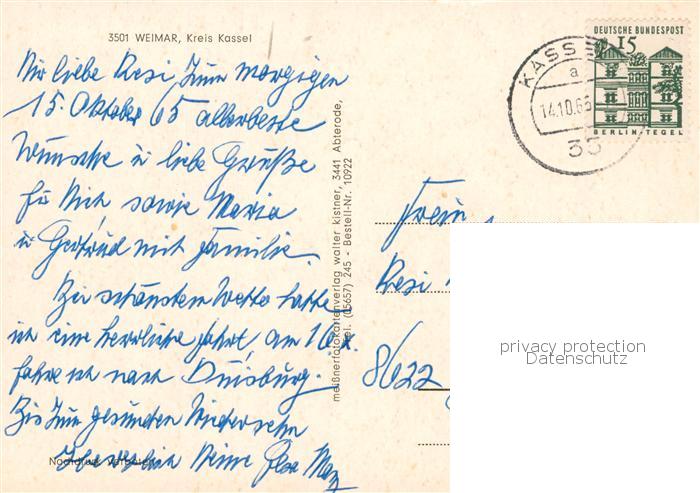 3501 WEIMAR, Kreis Kassel
liebe Resi, zum morgigen
15. Oktober 65 allerbeste
Wünsche u liebe Grüße
für Dich sowie Maria
u Gertrud mit Familie.
Bei schönstem Wetter hatte
ich eine herrliche Fahrt, am 16.x.
fahre ich nach Duisburg.
Bis zum gesunden Wiedersehn
Herzlich Deine
Nachdruck verboten
meißnerlandkartenverlag walter kistner, 3441 Abterode,
Tel. (05657) 245 - Bestell-Nr. 10922
KASSEL
a
14.10.65
35
DEUTSCHE BUNDESPOST
15
BERLIN-TEGEL
Resi
8622
privacy protection
Datenschutz